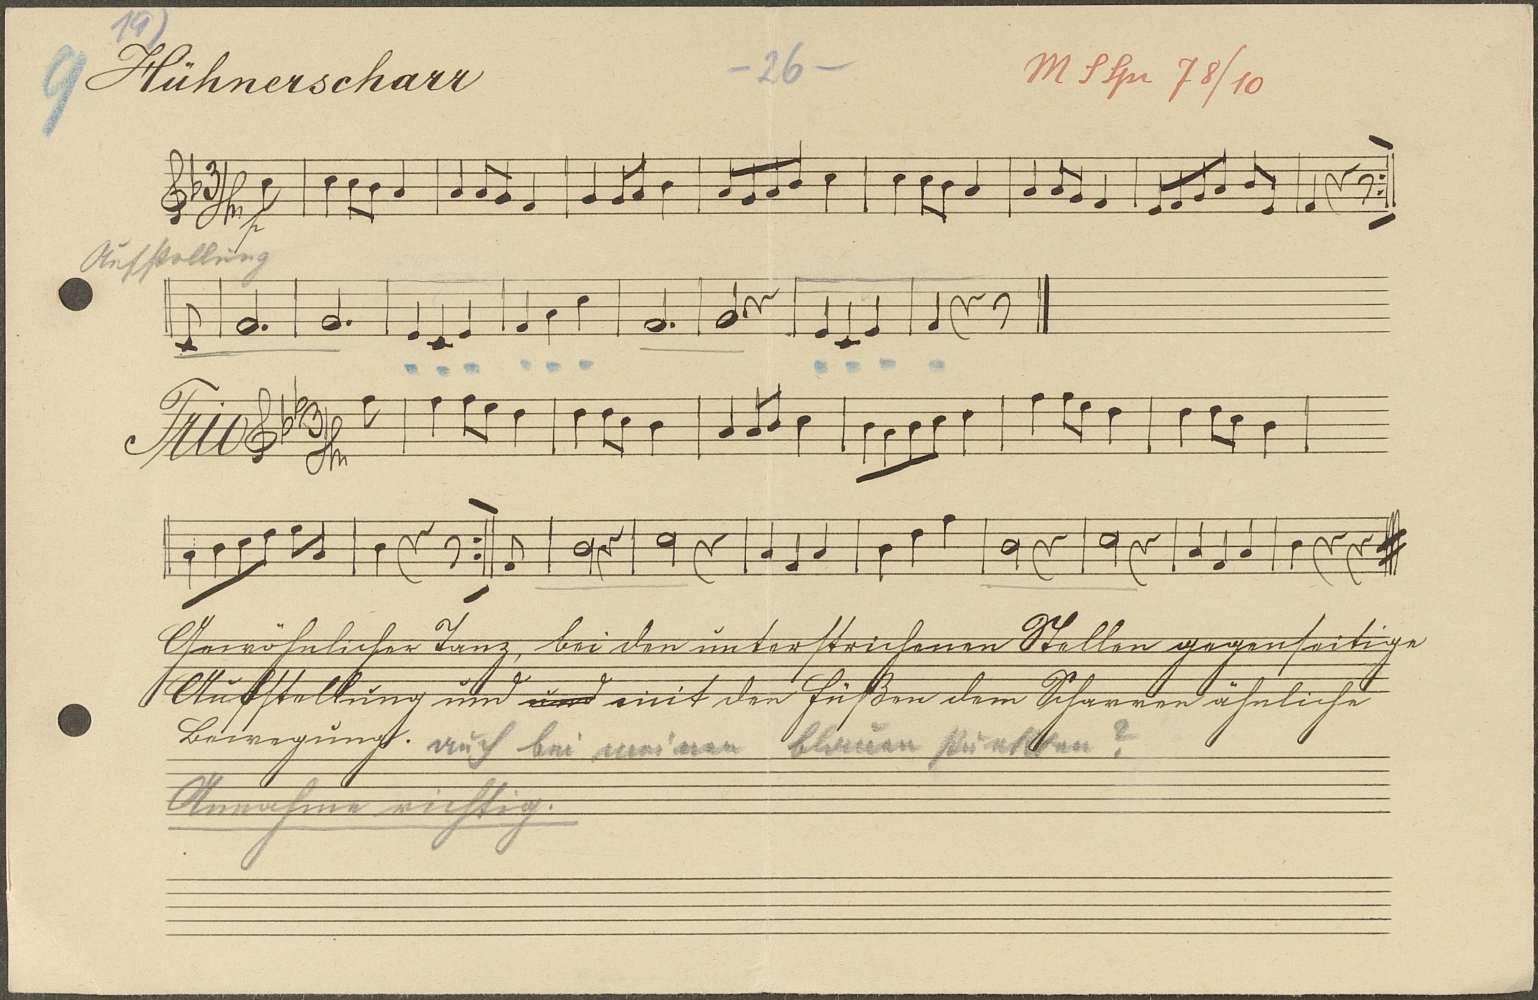 19)
9 Hühnerscharr
- 26 -
M S Spr 78/10
Aufstellung
Trio
Gewöhnlicher Tanz, bei den unterstrichenen Stellen gegenseitige
Aufstellung und und mit den Füßen dem Scharren ähnliche
Bewegung. auch bei meinen blauen Punkten?
Annahme richtig.